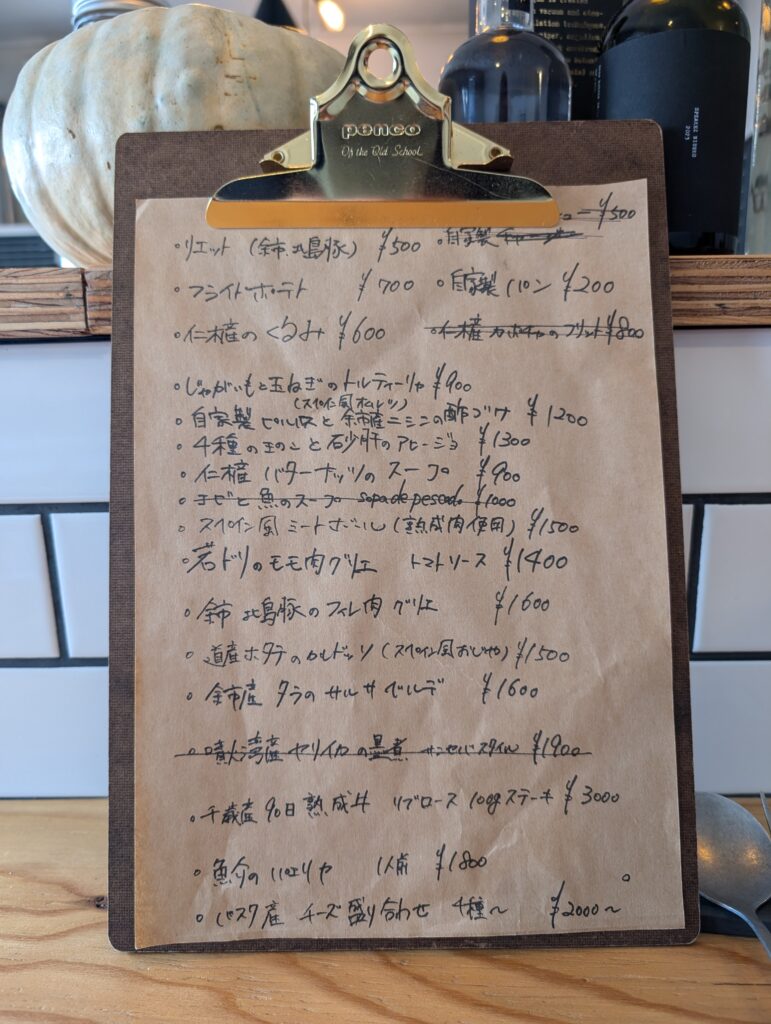 penco
Of the Old School
ュー ¥500
・リエット (余市北島豚) ¥500 ・自家製
・フライドポテト ¥700 ・自家製パン ¥200
・仁木産のくるみ ¥600 ・仁木産カボチャのプリン ¥800
・じゃがいもと玉ねぎのトルティーリャ ¥900
(スペイン風オムレツ)
・自家製ピクルスと余市産ニシンの酢づけ ¥1200
・4種のキノコと砂肝のアヒージョ ¥1300
・仁木産 バターナッツのスープ ¥900
・エビと魚のスープ sopa de pescado ¥1000
・スペイン風ミートボール (熟成肉使用) ¥1500
・若ドリのモモ肉グリエ トマトソース ¥1400
・余市北島豚のフィレ肉グリエ ¥1600
・道産ホタテのカルドッソ (スペイン風おじや) ¥1500
・余市産 タラのサルサベルデ ¥1600
・噴火湾産ヤリイカの墨煮 サンセバスタイル ¥1900
・千歳産90日熟成牛 リブロース 100gステーキ ¥3000
・魚介のパエリヤ 1人前 ¥1800
・バスク産 チーズ盛り合わせ 4種〜 ¥2000〜